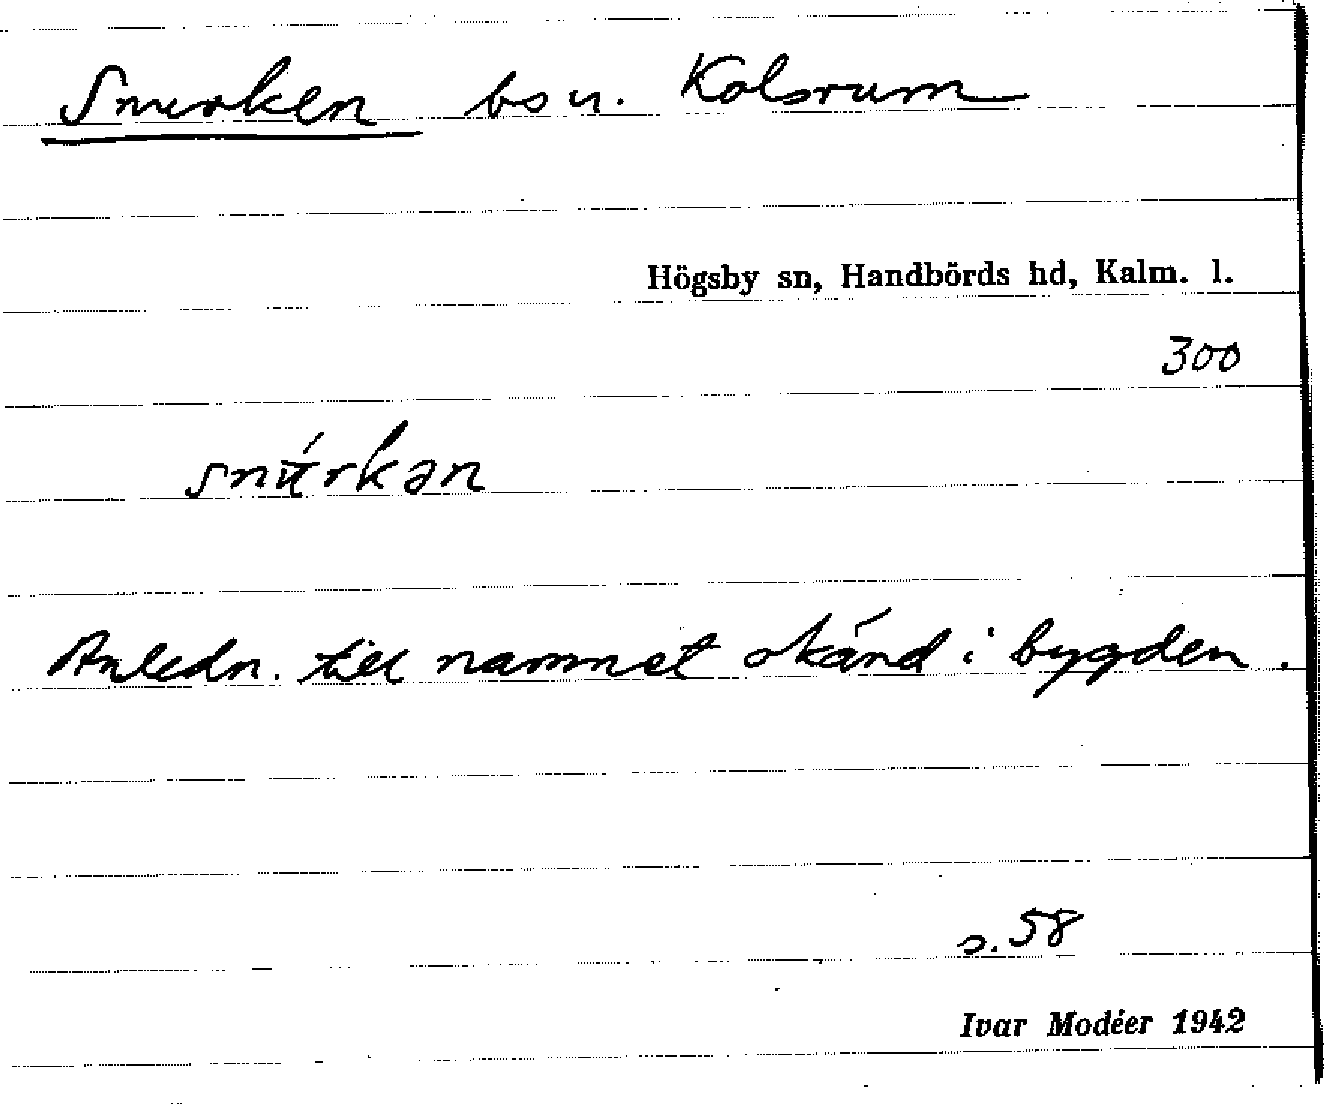 Snurken bsn. Kolsrum
Högsby sn, Handbörds hd, Kalm. l.
300
snúrkən
Anledn. till namnet okänd i bygden.
s. 58
Ivar Modéer 1942